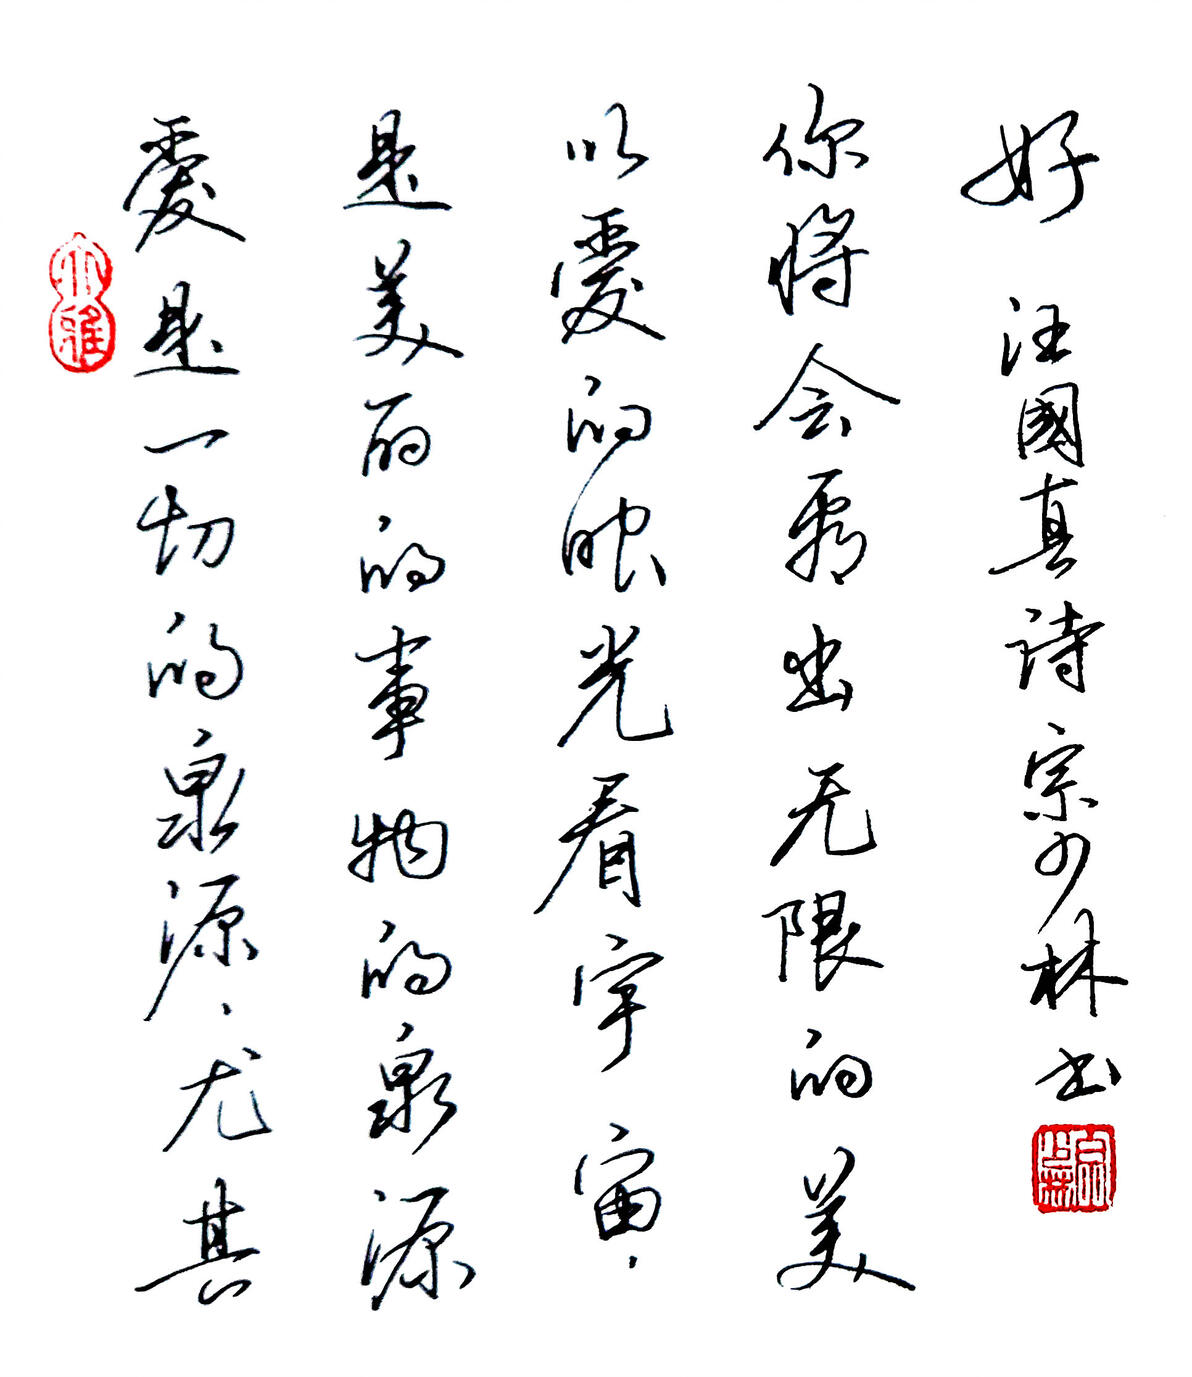 愛是一切的泉源，尤其
是美丽的事物的泉源
以愛的眼光看宇宙，
你将会出无限的美
好 汪國真诗 宗少林书
大雅